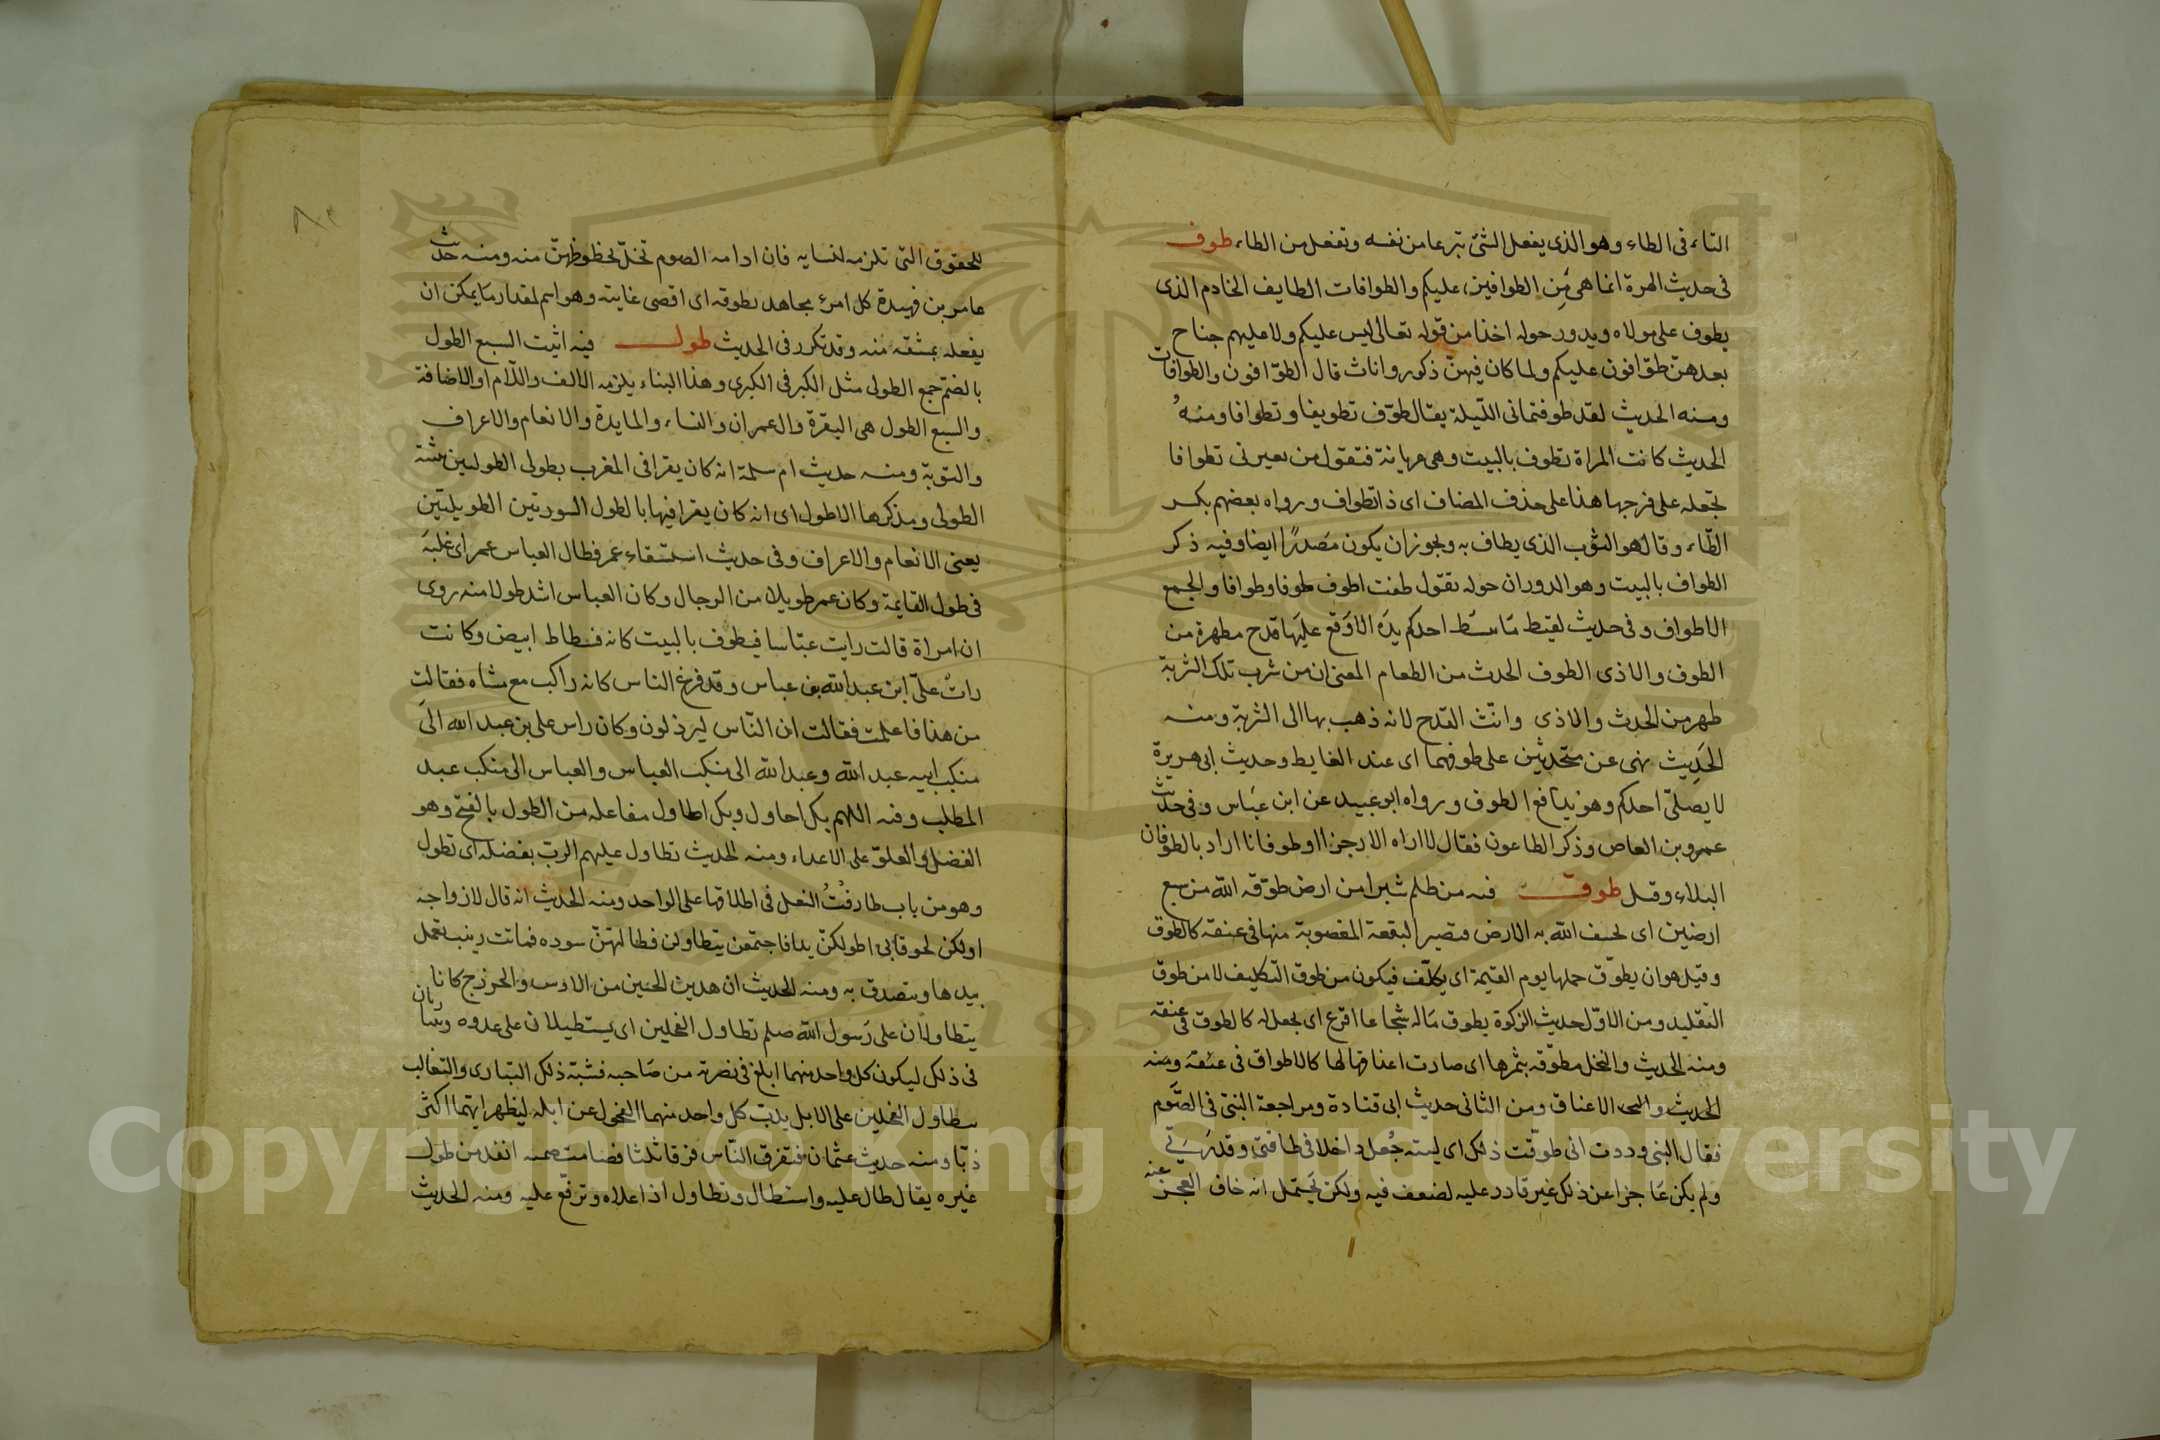 التاء فى الطاء وهو الذى يفعل الشئ تبرعا من نفسه وتفعل من الطاء طوف
فى حديث الهرة انما هى من الطوافين عليكم والطوافات الطايف الخادم الذى
يطوف على مولاه ويدور حوله اخذا من قوله تعالى ليس عليكم ولا عليهم جناح
بعدهن طوّافون عليكم ولما كان فيهنّ ذكور واناث قال الطوّافون والطوافات
ومنه الحديث لقد طوفتمانى اللّيلة يقال طوّف تطويفا وتطوافا ومنه
الحديث كانت المراة تطوف بالبيت وهى عريانة فتقول من يعيرنى تطوافا
تجعله على فرجها هذا على حذف المضاف اى ذا تطواف ورواه بعضهم بكسر
الطّاء وقال هو الثوب الذى يطاف به ويجوز ان يكون مصدرًا ايضا وفيه ذكر
الطواف بالبيت وهو الدوران حوله تقول طفت اطوف طوفا وطوافا والجمع
الاطواف وفى حديث لقيط ما يبسط احدكم يده الا وقع عليها قدح مطهرة من
الطوف والاذى الطوف الحدث من الطعام المعنى ان من شرب تلك الشربة
طهر من الحدث والاذى وانّث القدح لانه ذهب بها الى الشربة ومنه
الحديث نهى عن متحدثين على طوفهما اى عند الغايط وحديث ابى هريرة
لا يصلىّ احدكم وهو يدافع الطوف ورواه ابو عبيد عن ابن عباس وفى حديث
عمرو بن العاص وذكر الطاعون فقال لا اراه الا رجزا او طوفانا اراد بالطوفان
البلاء وقيل طوق فيه من ظلم شبرا من ارض طوّقه الله من سبع
ارضين اى يخسف الله به الارض فتصير البقعة المغصوبة منها فى عنقه كالطوق
وقيل هو ان يطوّق حملها يوم القيمة اى يكلّف فيكون من طوق التّكليف لا من طوق
التقليد ومن الاوّل حديث الزكوة يطوق ماله شجاعا اقرع اى يجعل له كالطوق فى عنقه
ومنه الحديث والنخل مطوّقة بثمرها اى صارت اعناقها لها كالاطواق فى عنقه ومنه
الحديث الاعناق ومن الثانى حديث ابى قتادة ومراجعة النبىّ فى الصّوم
فقال النبى وددت انى طوّقت ذلك اى ليته جُعل داخلا فى طاقتى وقدرتى
ولم يكن عاجزا عن ذلك غير قادر عليه لضعف فيه ولكن يحتمل انه خاف العجز عنه
للحقوق التى تلزمه لنسايه فان ادامه الصوم تخلّ بحظوظهنّ منه ومنه حديث
عامر بن فهيرة كل امرئ مجاهد بطوقه اى اقصى غايته وهو اسم لمقدار ما يمكن ان
يفعله بمشقه منه وقد تكرر فى الحديث طول فيه اتيت السبع الطول
بالضم جمع الطولى مثل الكبر فى الكبرى وهذا البناء يلزمه الالف واللّام او الاضافة
والسبع الطول هى البقرة وال عمران والنساء والمايدة والانعام والاعراف
والتوبة ومنه حديث ام سلمة انه كان يقرا فى المغرب بطولى الطوليين تثنية
الطولى ومذكرها الاطول اى انه كان يقرا فيها باطول السورتين الطويلتين
يعنى الانعام والاعراف وفى حديث استسقاء عمر فطال العباس عمر اى غلبه
فى طول القايمة وكان عمر طويلا من الرجال وكان العباس اشد طولا منه روى
ان امراة قالت رايت عبّاسا يطوف بالبيت كانه فسطاط ابيض وكانت
رات علىّ ابن عبد الله بن عباس وقد فرع الناس كانه راكب مع مشاه فقالت
من هذا فاعلمت فقالت ان النّاس ليرذلون وكان راس على بن عبد الله الى
منكب ابيه عبد الله وعبد الله الى منكب العباس والعباس الى منكب عبد
المطلب وفيه اللهم بك احاول وبك اطاول مفاعله من الطول بالفتح وهو
الفضل والعلوّ على الاعداء ومنه الحديث تطاول عليهم الربّ بفضله اى تطول
وهو من باب طارقتُ النعل فى اطلاقها على الواحد ومنه الحديث انه قال لازواجه
اولكن لحوقا بى اطولكنّ يدا فاجتمعن يتطاولن فطالتهنّ سوده فماتت زينب تعمل
بيدها وتتصدق به ومنه الحديث ان هذين الحيين من الاوس والخزرج كانا
يتطاولان على رسول الله صلم تطاول الفحلين اى يستطيلان على عدوه ويتباريان
فى ذلك ليكون كل واحد منهما ابلغ فى نصرته من صاحبه فشبّه ذلك التبارى والتغالب
بتطاول الفحلين على الابل يذبّ كل واحد منهما الفحول عن ابله ليظهر ايهما اكثر
ذبّا ومنه حديث عثمان فتفرق النّاس فرقا ثلثا فصامت صمته انفذ من طول
غيره يقال طال عليه واستطال وتطاول اذا علاه وترفّع عليه ومنه الحديث
Copyright © King Saud University
1957